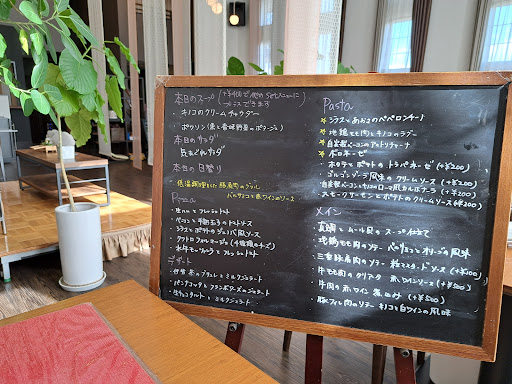 本日のスープ (+¥400で他のSetメニューに プラスできます
・キノコのクリームチャウダー
・ポタリン
本日のサラダ
気まぐれサラダ
本日の日替り
低温調理した豚肩肉のグリル
バルサミコと赤ワインのソース
Pizza
・生ハムとフレッシュトマト
・ベーコンと半熟玉子のトマトソース
・シラスとポテトのジェノバ風ソース
・クワトロフォルマッジ (4種類のチーズ)
・水牛モッツァレラとフレッシュトマト
デザート
・伊勢茶のブリュレとミルクジェラート
・パンナコッタとフランボワーズのジェラート
・生チョコタルトとミルクジェラート
Pasta
・シラスとあおさのペペロンチーノ
・地鶏モモ肉とキノコのラグー
・自家製ベーコンのアマトリチャーナ
・ボロネーゼ
・ホタテとポテトのトラパネーゼ (+¥200)
・ゴルゴンゾーラ風味のクリームソース (+¥200)
・自家製ベーコンとキノコのローマ風カルボナーラ (+¥200)
・スモークサーモンとポテトのクリームソース (+¥200)
メイン
・真鯛とムール貝のスープ仕立て
・地鶏モモ肉のソテー バルサミコとオレンジの風味
・三重豚肩肉のソテー 粒マスタードソース (+¥100)
・牛モモ肉のタリアータ 赤ワインソース (+¥500)
・牛肉の赤ワイン煮込み (+¥500)
・豚フィレ肉のソテー キノコと白ワインの風味